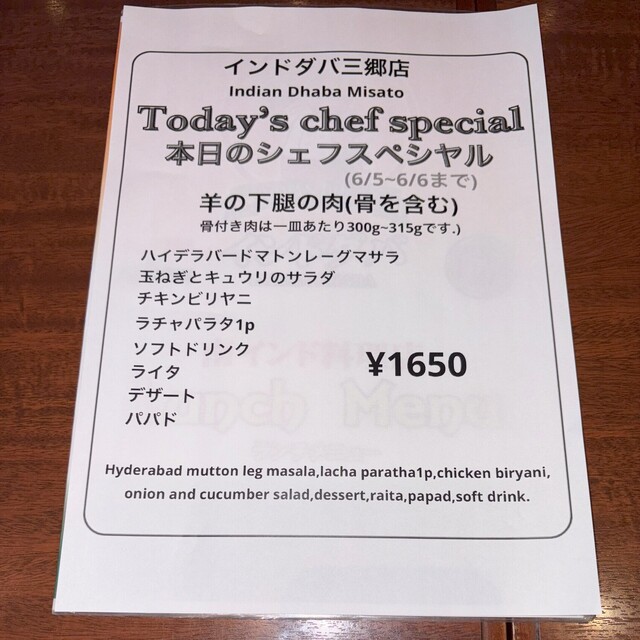 インドダバ三郷店
Indian Dhaba Misato
Today's chef special
本日のシェフスペシャル
(6/5~6/6まで)
羊の下腿の肉(骨を含む)
骨付き肉は一皿あたり300g~315gです.)
ハイデラバードマトンレーグマサラ
玉ねぎとキュウリのサラダ
チキンビリヤニ
ラチャパラタ1p
ソフトドリンク
ライタ
¥1650
デザート
パパド
Hyderabad mutton leg masala,lacha paratha1p,chicken biryani,
onion and cucumber salad,dessert,raita,papad,soft drink.